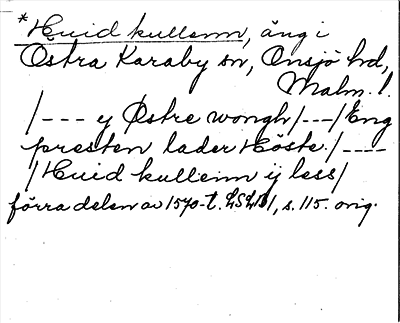 *Huid kullenn, äng i
Östra Karaby sn, Onsjö hd,
Malm. l.
/--- y Østre wongh /---/ Eng
presten lader Höste. /----
/ Huid kullenn ij less /
förra delen av 1570-t. LSLB1, s. 115. orig.